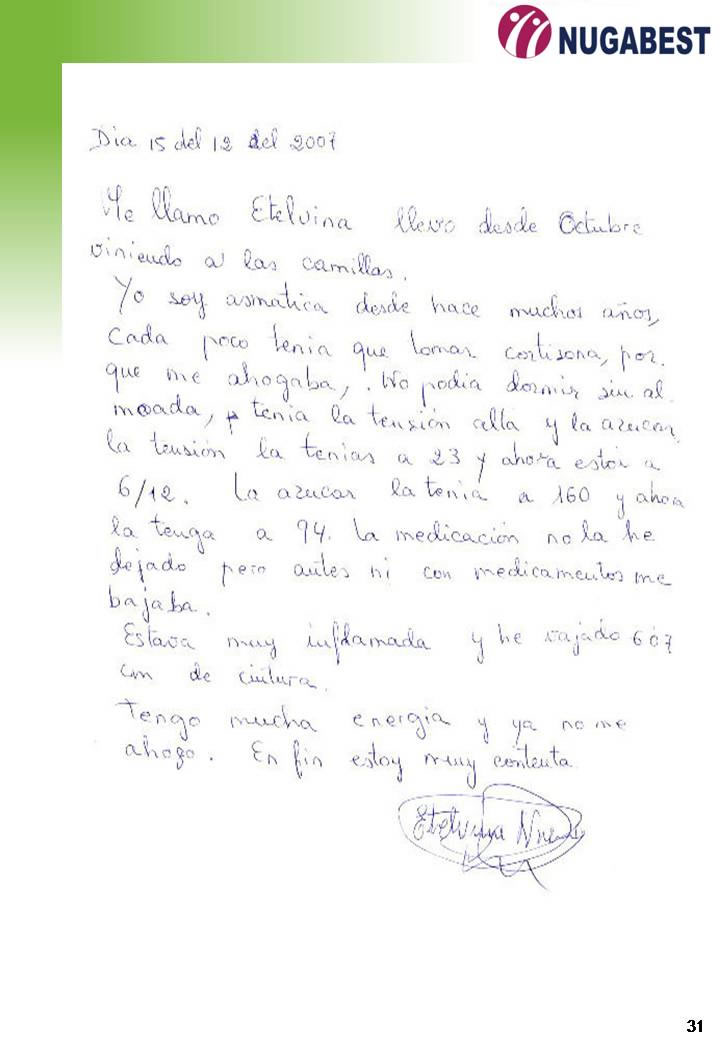 NUGABEST
Dia 15 del 12 del 2007
Me llamo Etelvina llevo desde Octubre
viniendo a las camillas.
Yo soy asmatica desde hace muchos años,
Cada poco tenia que tomar cortisona, por.
que me ahogaba, . No podia dormir sin al
moada, tenia la tensión alta y la azucar
la tensión la tenias a 23 y ahora estoi a
6/12. La azucar la tenia a 160 y ahora
la tenga a 94. La medicación no la he
dejado pero antes ni con medicamentos me
bajaba.
Estava muy inflamada y he vajado 6 ó 7
cm de cintura.
Tengo mucha energia y ya no me
ahogo. En fin estoy muy contenta.
Etelvina
31